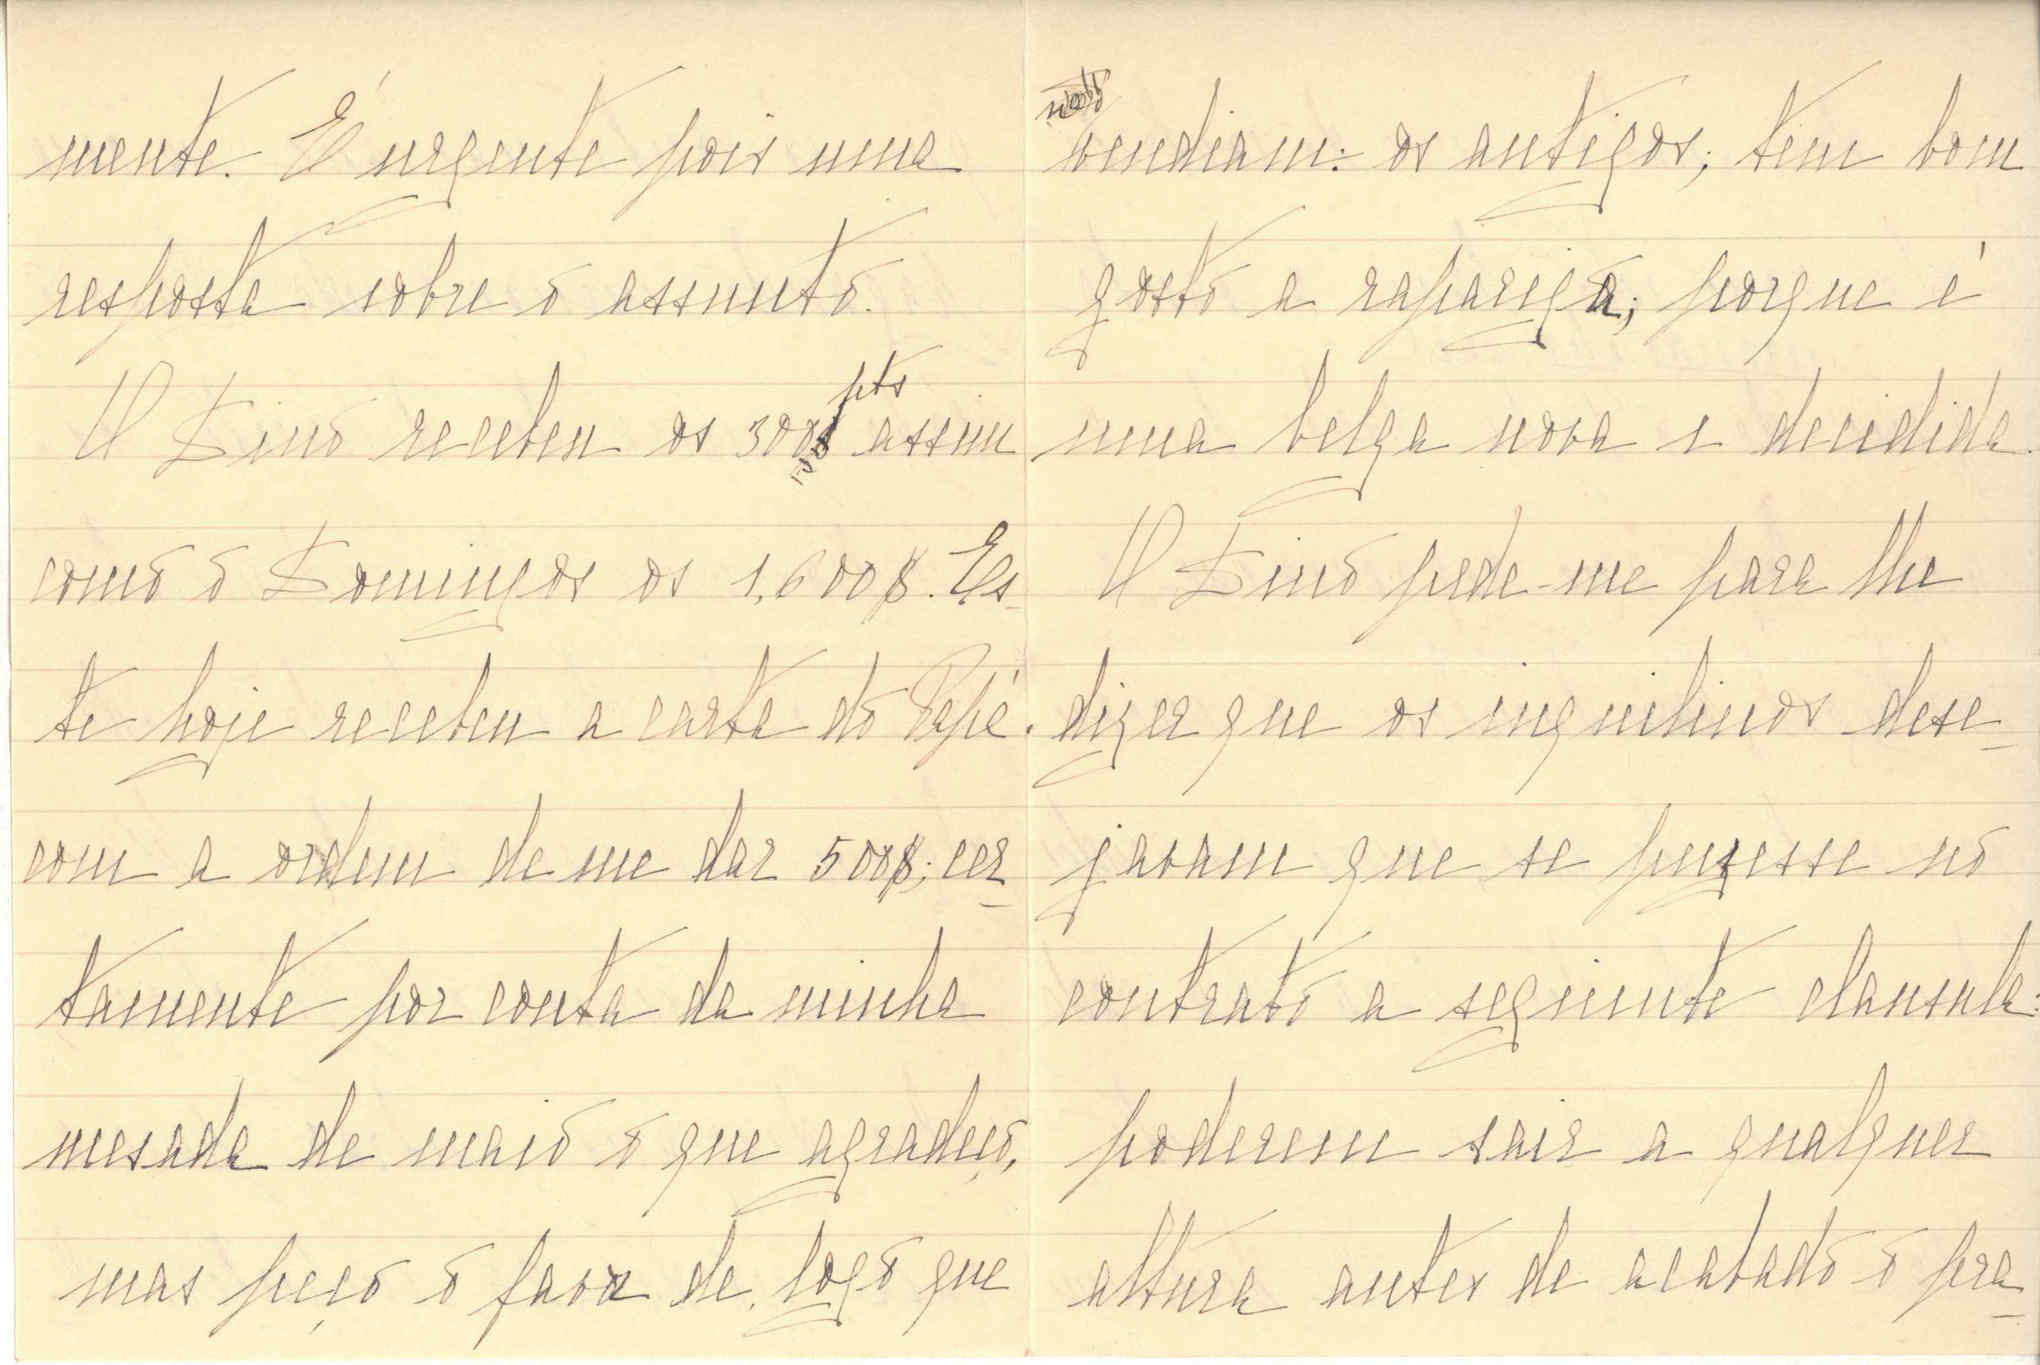 mente. É urgente pois uma
resposta sobre o assunto.
O Lino recebeu os 300 pts assim
como o Domingos os 1.600$. Es-
te hoje recebeu a carta do Papá.
com a ordem de me dar 500$; cer-
tamente por conta da minha
mesada de maio o que agradeço,
mas peço o favor de, logo que
vendiam: os antigos; tem bom
gosto a rapariga; porque é
uma belga nova e decidida.
O Lino pede-me para lhe
dizer que os inquilinos dese-
javam que se puzesse no
contrato a seguinte clausula:
poderem sair a qualquer
altura antes de acabado o pra-